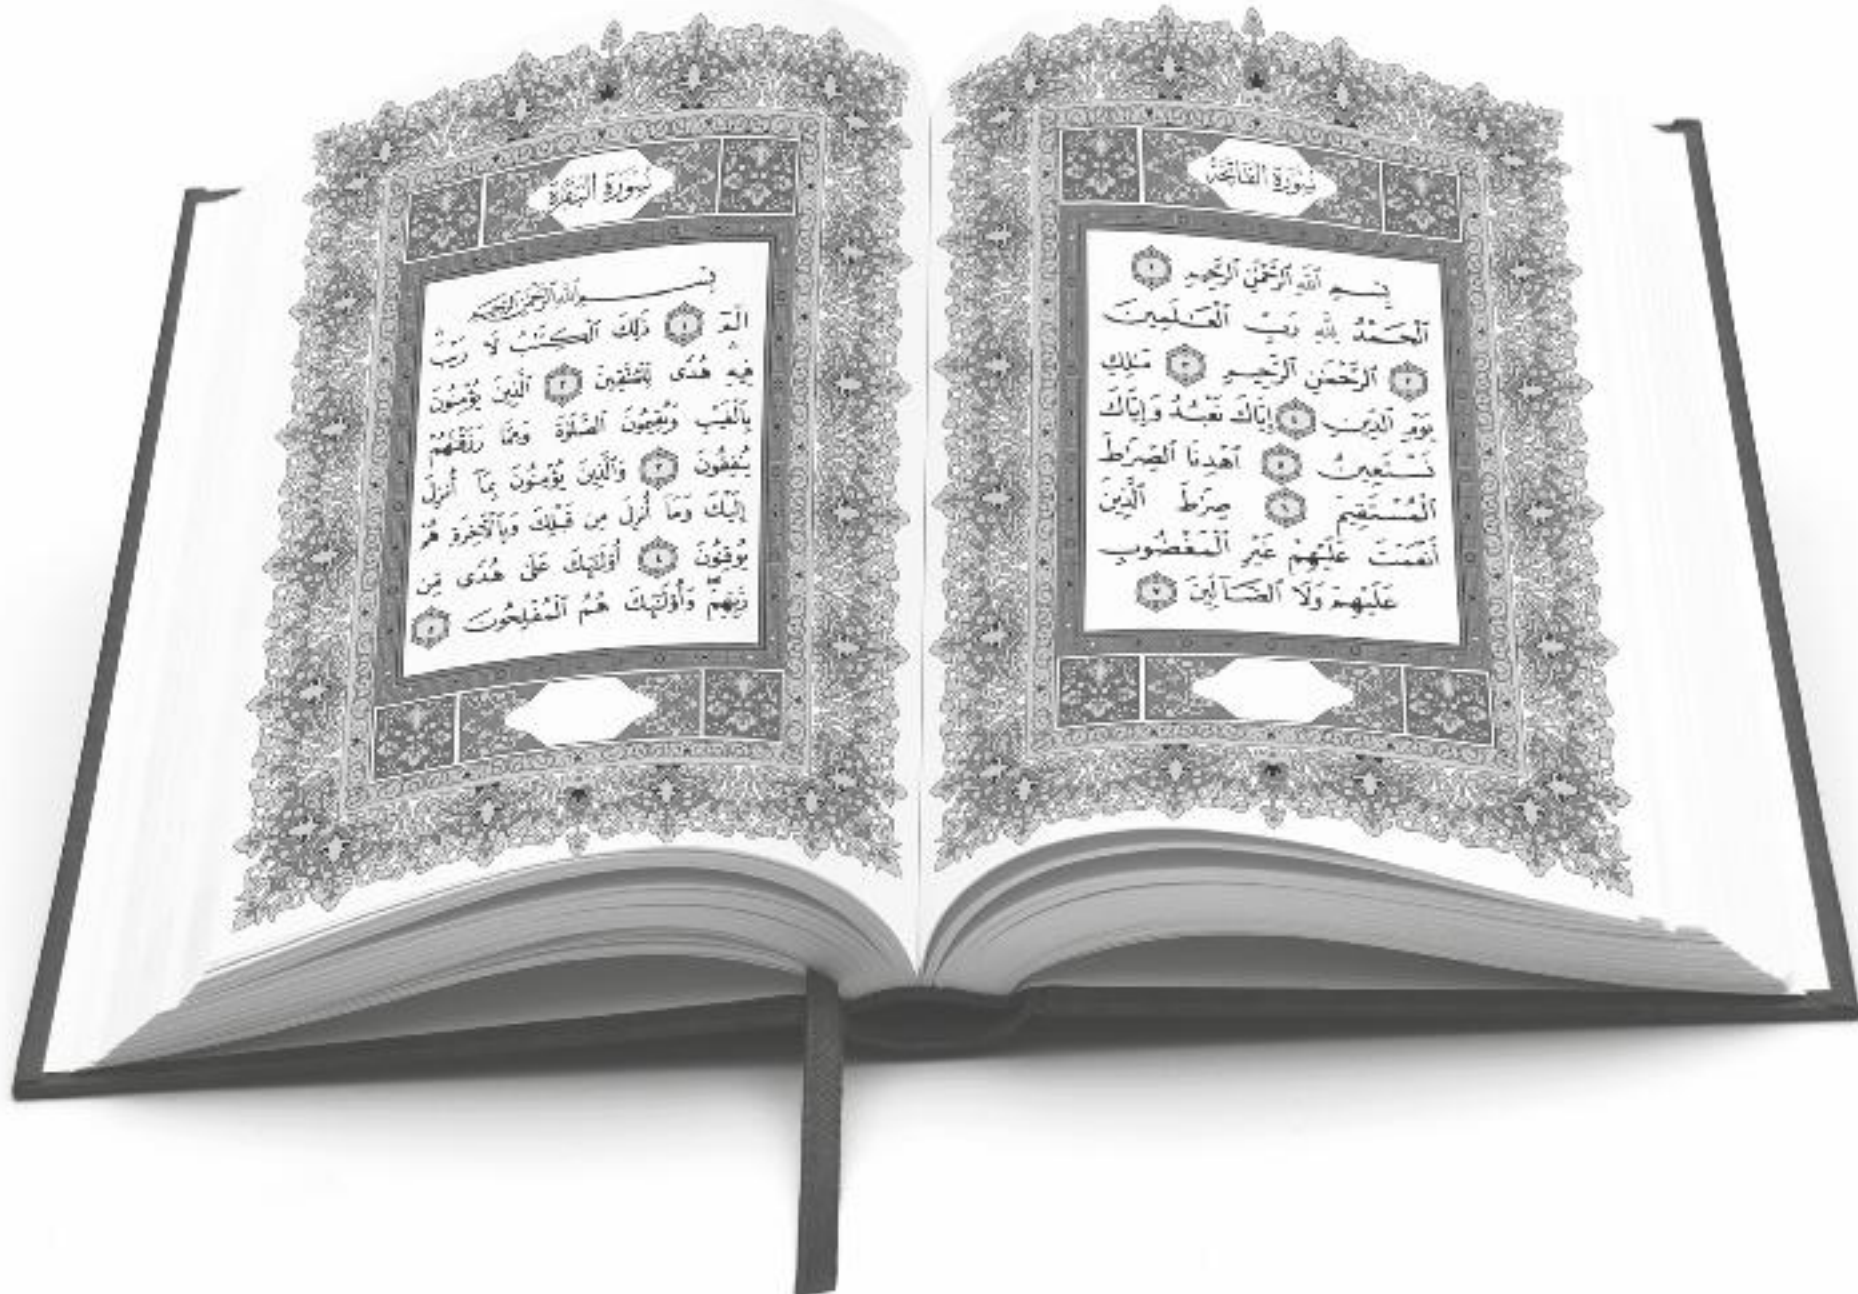 سُورَةُ الفَاتِحَةِ
بِسْمِ ٱللَّهِ ٱلرَّحْمَٰنِ ٱلرَّحِيمِ ١
ٱلْحَمْدُ لِلَّهِ رَبِّ ٱلْعَٰلَمِينَ
٢ ٱلرَّحْمَٰنِ ٱلرَّحِيمِ ٣ مَٰلِكِ
يَوْمِ ٱلدِّينِ ٤ إِيَّاكَ نَعْبُدُ وَإِيَّاكَ
نَسْتَعِينُ ٥ ٱهْدِنَا ٱلصِّرَٰطَ
ٱلْمُسْتَقِيمَ ٦ صِرَٰطَ ٱلَّذِينَ
أَنْعَمْتَ عَلَيْهِمْ غَيْرِ ٱلْمَغْضُوبِ
عَلَيْهِمْ وَلَا ٱلضَّآلِّينَ ٧
سُورَةُ البَقَرَةِ
بِسْمِ ٱللَّهِ ٱلرَّحْمَٰنِ ٱلرَّحِيمِ
الٓمٓ ١ ذَٰلِكَ ٱلْكِتَٰبُ لَا رَيْبَ
فِيهِ هُدًى لِّلْمُتَّقِينَ ٢ ٱلَّذِينَ يُؤْمِنُونَ
بِٱلْغَيْبِ وَيُقِيمُونَ ٱلصَّلَوٰةَ وَمِمَّا رَزَقْنَٰهُمْ
يُنفِقُونَ ٣ وَٱلَّذِينَ يُؤْمِنُونَ بِمَآ أُنزِلَ
إِلَيْكَ وَمَآ أُنزِلَ مِن قَبْلِكَ وَبِٱلْءَاخِرَةِ هُمْ
يُوقِنُونَ ٤ أُو۟لَٰٓئِكَ عَلَىٰ هُدًى مِّن
رَّبِّهِمْ وَأُو۟لَٰٓئِكَ هُمُ ٱلْمُفْلِحُونَ ٥